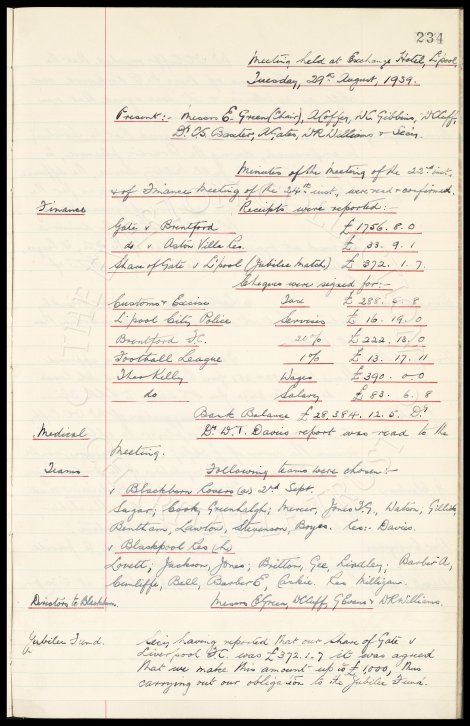 234
Meeting held at Exchange Hotel, L'pool,
Tuesday, 29th August, 1939.
Present:- Messrs E. Green (Chair), A Coffey, W.C. Gibbins, W. Cuff,
Dr. C.S. Baxter, A Gates, W.R. Williams & Secy.
Minutes of the Meeting of the 22nd inst.
& of Finance Meeting of the 24th inst, were read & confirmed.
Finance Receipts were reported:-
Gate v Brentford £1756. 8. 0
do v Aston Villa Res. £ 33. 9. 1
Share of Gate v L'pool (Jubilee Match) £ 372. 1. 7.
Cheques were signed for:-
Customs & Excise Tax £ 288. 6. 8
L'pool City Police Services £ 16. 19. 0
Brentford F.C. 20% £ 222. 13. 0
Football League 1% £ 13. 17. 11
Theo Kelly Wages £ 390. 0. 0
do Salary £ 83. 6. 8
Bank Balance £ 28,384. 12. 5. Dr
Medical Dr. W.T. Davis report was read to the
Meeting.
Teams Following teams were chosen:-
v Blackburn Rovers (a) 2nd Sept.
Sagar; Cook, Greenhalgh; Mercer, Jones T.G., Watson; Gillick,
Bentham, Lawton, Stevenson, Boyes. Res:- Davies.
v Blackpool Res (h)
Lovett; Jackson, Jones; Britton, Gee, Lindley; Barber A,
Cunliffe, Bell, Barber E, Caskie. Res Milligan.
Directors to Blackburn. Messrs E Green, W Cuff, G Evans & W.R. Williams.
Jubilee Fund. Secy. having reported that our share of Gate v
Liverpool F.C. was £372.1.7 it was agreed
that we make this amount up to £1,000, thus
carrying out our obligation to the Jubilee Fund.